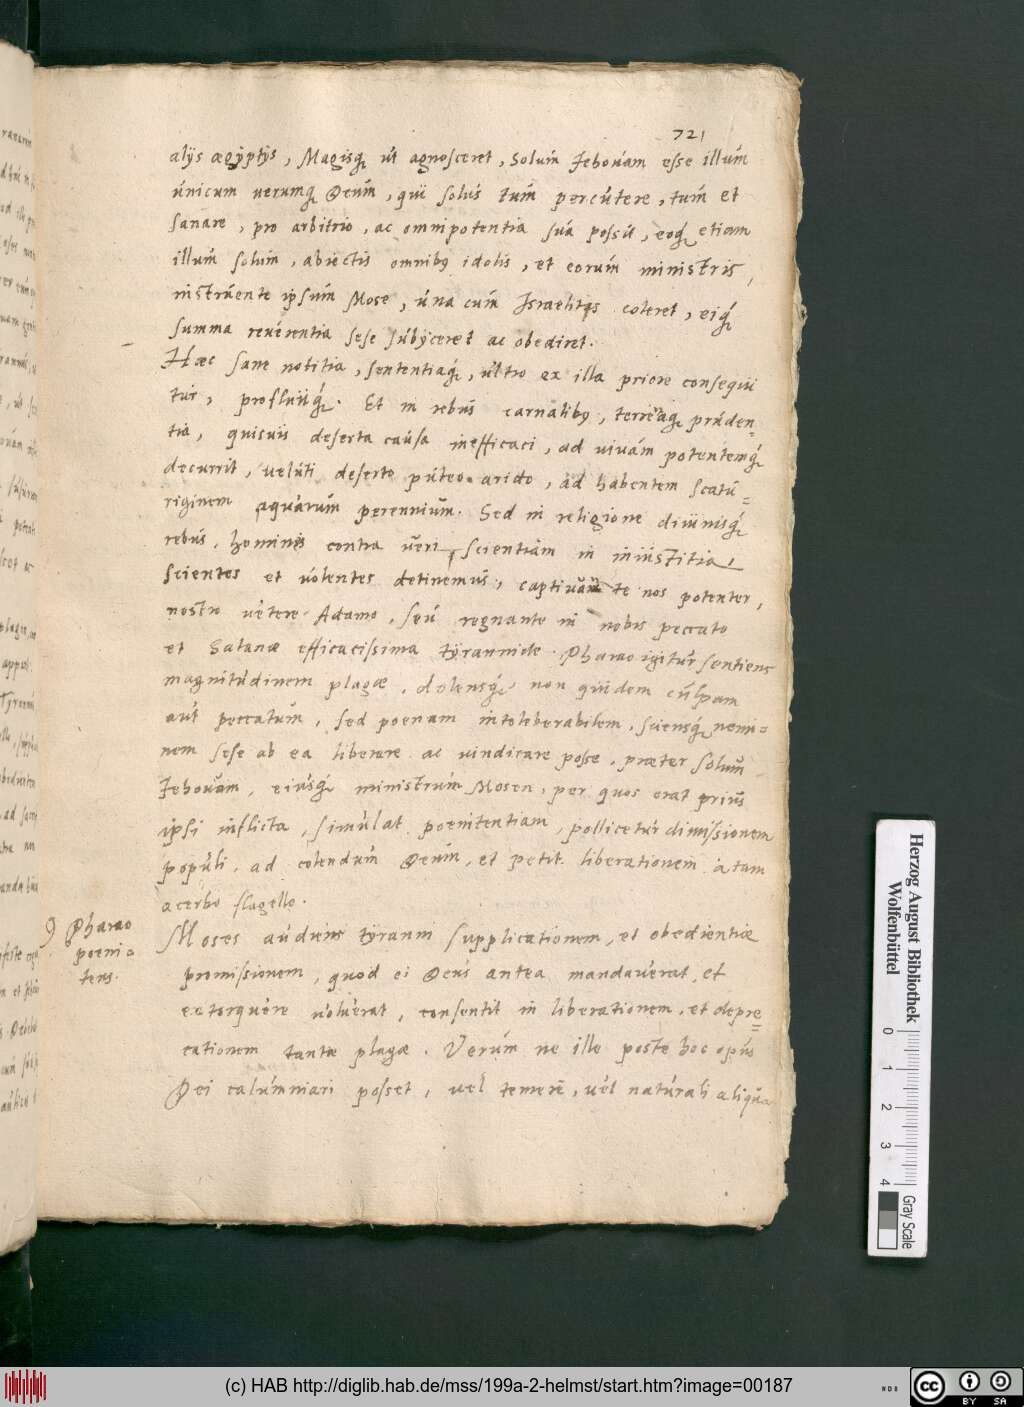 721
alijs ægyptijs, Magisq́ꝫ ut agnosceret, Solum Jehouam esse illum
unicum uerumqꝫ Deum, qui solus tum percutere, tum et
sanare, pro arbitrio, ac omnipotentia sua possit, eoqꝫ etiam
illum solum, abiectis omnibꝰ idolis, et eorum ministris,
nistruente ipsum Mose, una cum Israelitis coleret, eiqꝫ
summa reuerentia sese subijceret ac obediret.
Hæc sane notitia, sententiaqꝫ, ultro ex illa priore consequi
tur, profluitqꝫ. Et in rebus carnalibꝰ, terrenaqꝫ pruden=
tia, quisuis deserta causa inefficaci, ad uiuam potentemqꝫ
decurrit, ueluti deserto puteo arido, ad habentem scatu=
riginem aquarum perennium. Sed in religione diuinisqꝫ
rebus, homines contra ueri scientiam in iniustitia
scientes et uolentes detinemus, captiuante nos potenter,
nostro uetere Adamo, seu regnante in nobis peccato
et Satanæ efficacissima tyrannide. Pharao igitur sentiens
magnitudinem plagæ, dolensqꝫ non quidem culpam
aut peccatum, sed poenam intoleberabilem, sciensqꝫ nemi=
nem sese ab ea liberare ac uindicare posse, præter solum
Jehouam, eiusqꝫ ministrum Mosen, per quos erat prius
ipsi inflicta, simulat poenitentiam, pollicetur dimissionem
populi, ad colendum Deum, et petit liberationem a tam
acerbo flagello.
Pharao
poeni=
tens.
Moses audiens tyranni supplicationem, et obedientiæ
promissionem, quod ei Deus antea mandauerat, et
extorquere uoluerat, consentit in liberationem, et depre=
cationem tantæ plagæ. Verum ne ille postea hoc opus
Dei calumniari posset, uel temere, uel naturali aliqua
Herzog August Bibliothek
Wolfenbüttel
0 1 2 3 4
Gray Scale
(c) HAB http://diglib.hab.de/mss/199a-2-helmst/start.htm?image=00187
cc BY SA